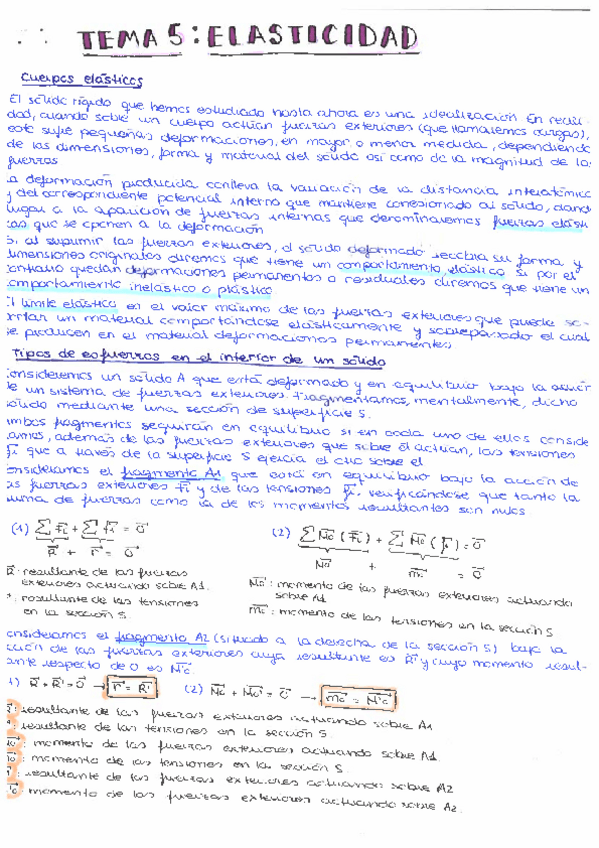 TEMA 5: ELASTICIDAD
Cuerpos elásticos
El sólido rígido que hemos estudiado hasta ahora es una idealización. En reali-
dad, cuando sobre un cuerpo actúan fuerzas exteriores (que llamaremos cargas),
este sufre pequeñas deformaciones, en mayor o menor medida, dependiendo
de las dimensiones, forma y material del sólido así como de la magnitud de las
fuerzas
La deformación producida conlleva la variación de la distancia interatómica
y del correspondiente potencial interno que mantiene cohesionado al sólido, dando
lugar a la aparición de fuerzas internas que denominaremos fuerzas elásti-
cas que se oponen a la deformación
Si al suprimir las fuerzas exteriores, el sólido deformado recobra su forma y
dimensiones originales diremos que tiene un comportamiento elástico. Si por el
contrario quedan deformaciones permanentes o residuales diremos que tiene un
comportamiento inelástico o plástico
El límite elástico en el valor máximo de las fuerzas exteriores que puede so-
portar un material comportándose elásticamente y sobrepasado el cual
se producen en el material deformaciones permanentes
Tipos de esfuerzos en el interior de un sólido
Consideremos un sólido A que está deformado y en equilibrio bajo la acción
de un sistema de fuerzas exteriores. Fragmentamos, mentalmente, dicho
sólido mediante una sección de superficie S.
Ambos fragmentos seguirán en equilibrio si en cada uno de ellos conside
ramos, además de las fuerzas exteriores que sobre él actúan, las tensiones
fi que a través de la superficie S ejercía el otro sobre él
Consideremos el fragmento A1 que está en equilibrio bajo la acción de
las fuerzas exteriores Fi y de las tensiones fi, verificándose que tanto la
suma de fuerzas como la de los momentos resultantes son nulos
(1) ∑ F⃗i + ∑ f⃗i = 0⃗ (2) ∑ M⃗o (F⃗i) + ∑ M⃗o (f⃗i) = 0⃗
R⃗ + r⃗ = 0⃗ M⃗o + m⃗o = 0⃗
R⃗: resultante de las fuerzas
exteriores actuando sobre A1.
r⃗: resultante de las tensiones
en la sección S.
M⃗o: momento de las fuerzas exteriores actuando
sobre A1
m⃗o: momento de las tensiones en la sección S
Consideramos el fragmento A2 (situado a la derecha de la sección S) bajo la
acción de las fuerzas exteriores cuya resultante es R⃗' y cuyo momento resul-
tante respecto de O es M⃗o'
1) R⃗ + R⃗' = 0⃗ → r⃗ = R⃗' (2) M⃗o + M⃗o' = 0⃗ → m⃗o = M⃗'o
R⃗: resultante de las fuerzas exteriores actuando sobre A1
r⃗: resultante de las tensiones en la sección S
M⃗o: momento de las fuerzas exteriores actuando sobre A1.
m⃗o: momento de las tensiones en la sección S
R⃗': resultante de las fuerzas exteriores actuando sobre A2
M⃗'o: momento de las fuerzas exteriores actuando sobre A2.